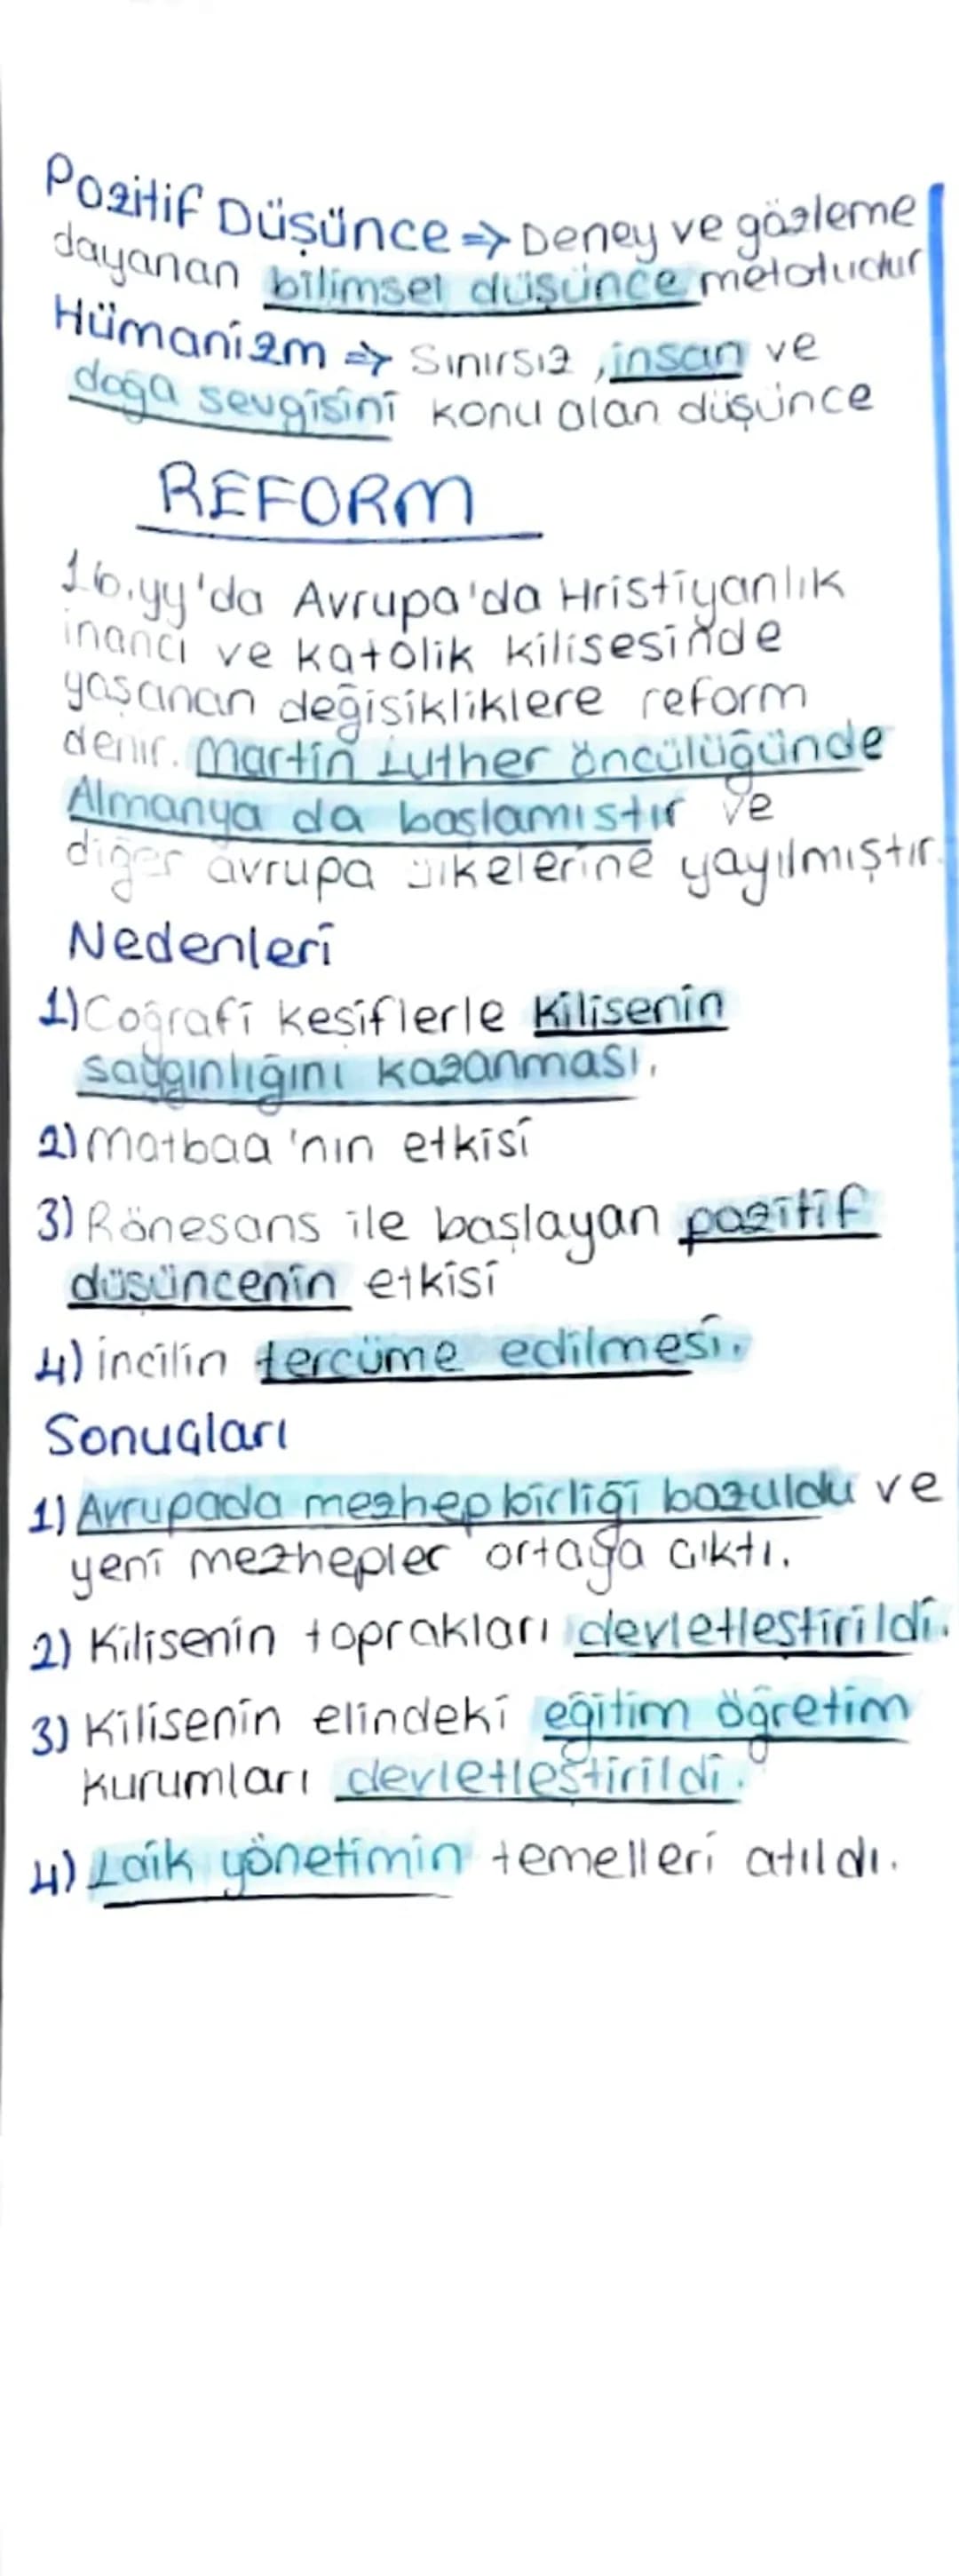 Pozitif Düşünce => Deney ve gözleme
dayanan bilimsel düşünce metotudur
Hümanizm => Sınırsız, insan ve
doğa sevgisini konu alan düşünce
REFORM
16.yy'da Avrupa'da Hristiyanlık
inancı ve katolik kilisesinde
yaşanan değişikliklere reform
denir. Martin Luther öncülüğünde
Almanya da başlamıştır ve
diğer avrupa ülkelerine yayılmıştır.
Nedenleri
1) Coğrafi keşiflerle Kilisenin
saygınlığını kazanması.
2) Matbaa'nın etkisi
3) Rönesans ile başlayan pozitif
düşüncenin etkisi
4) incilin tercüme edilmesi.
Sonuçları
1) Avrupada mezhep birliği bozuldu ve
yeni mezhepler ortaya çıktı.
2) Kilisenin toprakları devletleştirildi.
3) Kilisenin elindeki eğitim öğretim
kurumları devletleştirildi.
4) Laik yönetimin temelleri atıldı.